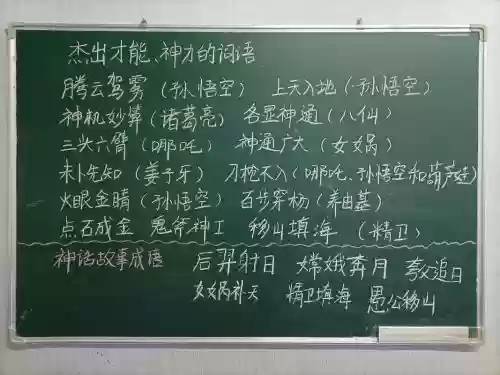 杰出才能、神力的词语
腾云驾雾（孙悟空） 上天入地（孙悟空）
神机妙算（诸葛亮） 各显神通（八仙）
三头六臂（哪吒） 神通广大（女娲）
未卜先知（姜子牙） 刀枪不入（哪吒、孙悟空和葫芦娃）
火眼金睛（孙悟空） 百步穿杨（养由基）
点石成金 鬼斧神工 移山填海 （精卫）
神话故事成语 后羿射日 嫦娥奔月 夸父追日
女娲补天 精卫填海 愚公移山